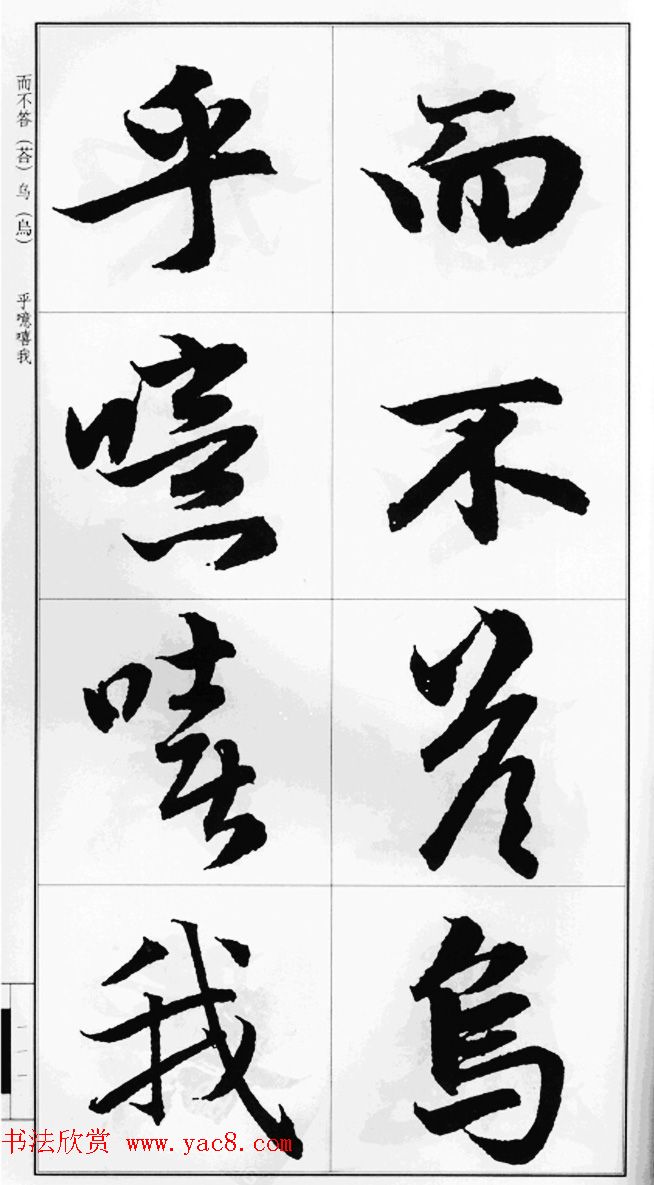 而不荅烏
乎噫嘻我
而不答（荅）乌（烏）　乎噫嘻我
书法欣赏 www.yac8.com